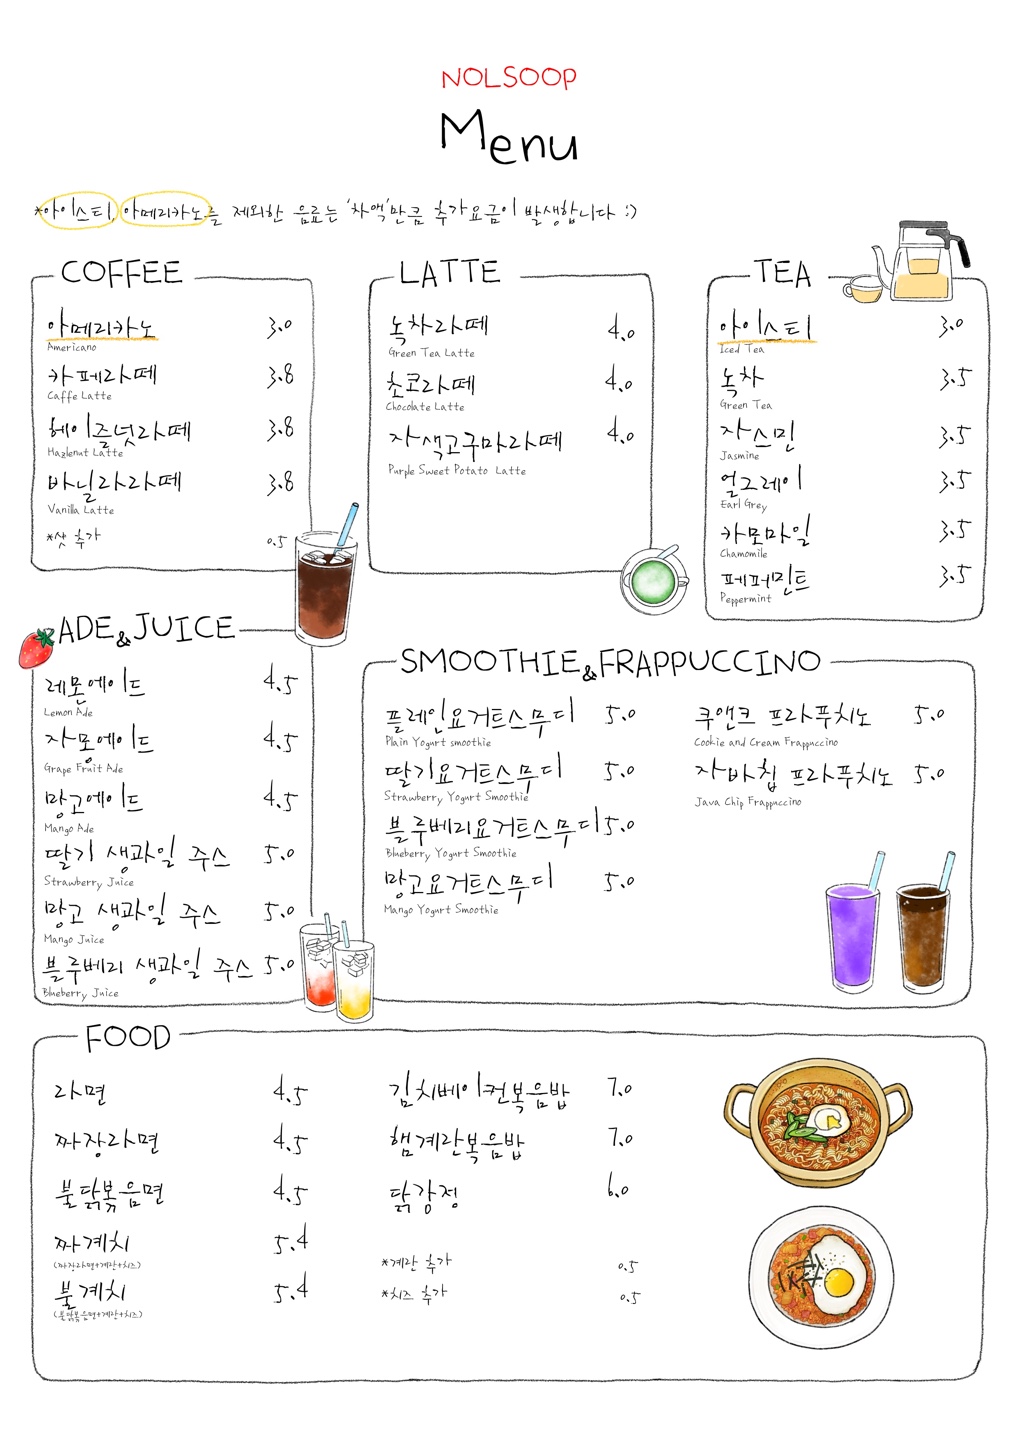 NOLSOOP
Menu
*아이스티, 아메리카노를 제외한 음료는 '차액'만큼 추가요금이 발생합니다 :)
COFFEE
아메리카노 3.0
Americano
카페라떼 3.8
Caffe Latte
헤이즐넛라떼 3.8
Hazlenut Latte
바닐라라떼 3.8
Vanilla Latte
*샷 추가 0.5
LATTE
녹차라떼 4.0
Green Tea Latte
초코라떼 4.0
Chocolate Latte
자색고구마라떼 4.0
Purple Sweet Potato Latte
TEA
아이스티 3.0
Iced Tea
녹차 3.5
Green Tea
자스민 3.5
Jasmine
얼그레이 3.5
Earl Grey
카모마일 3.5
Chamomile
페퍼민트 3.5
Peppermint
ADE&JUICE
레몬에이드 4.5
Lemon Ade
자몽에이드 4.5
Grape Fruit Ade
망고에이드 4.5
Mango Ade
딸기 생과일 주스 5.0
Strawberry Juice
망고 생과일 주스 5.0
Mango Juice
블루베리 생과일 주스 5.0
Blueberry Juice
SMOOTHIE&FRAPPUCCINO
플레인요거트스무디 5.0
Plain Yogurt smoothie
딸기요거트스무디 5.0
Strawberry Yogurt Smoothie
블루베리요거트스무디 5.0
Blueberry Yogurt Smoothie
망고요거트스무디 5.0
Mango Yogurt Smoothie
쿠앤크 프라푸치노 5.0
Cookie and Cream Frappuccino
자바칩 프라푸치노 5.0
Java Chip Frappuccino
FOOD
라면 4.5
짜장라면 4.5
불닭볶음면 4.5
짜계치 5.4
(짜장라면+계란+치즈)
불계치 5.4
(불닭볶음면+계란+치즈)
김치베이컨볶음밥 7.0
햄계란볶음밥 7.0
닭강정 6.0
*계란 추가 0.5
*치즈 추가 0.5